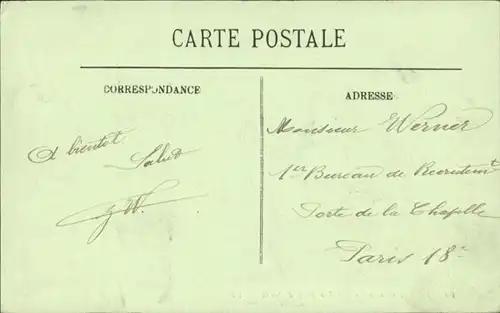 CARTE POSTALE
CORRESPONDANCE
A bientot
Salut
ADRESSE
Monsieur Werner
1er Bureau de Recrutemt
Porte de la Chapelle
Paris 18e